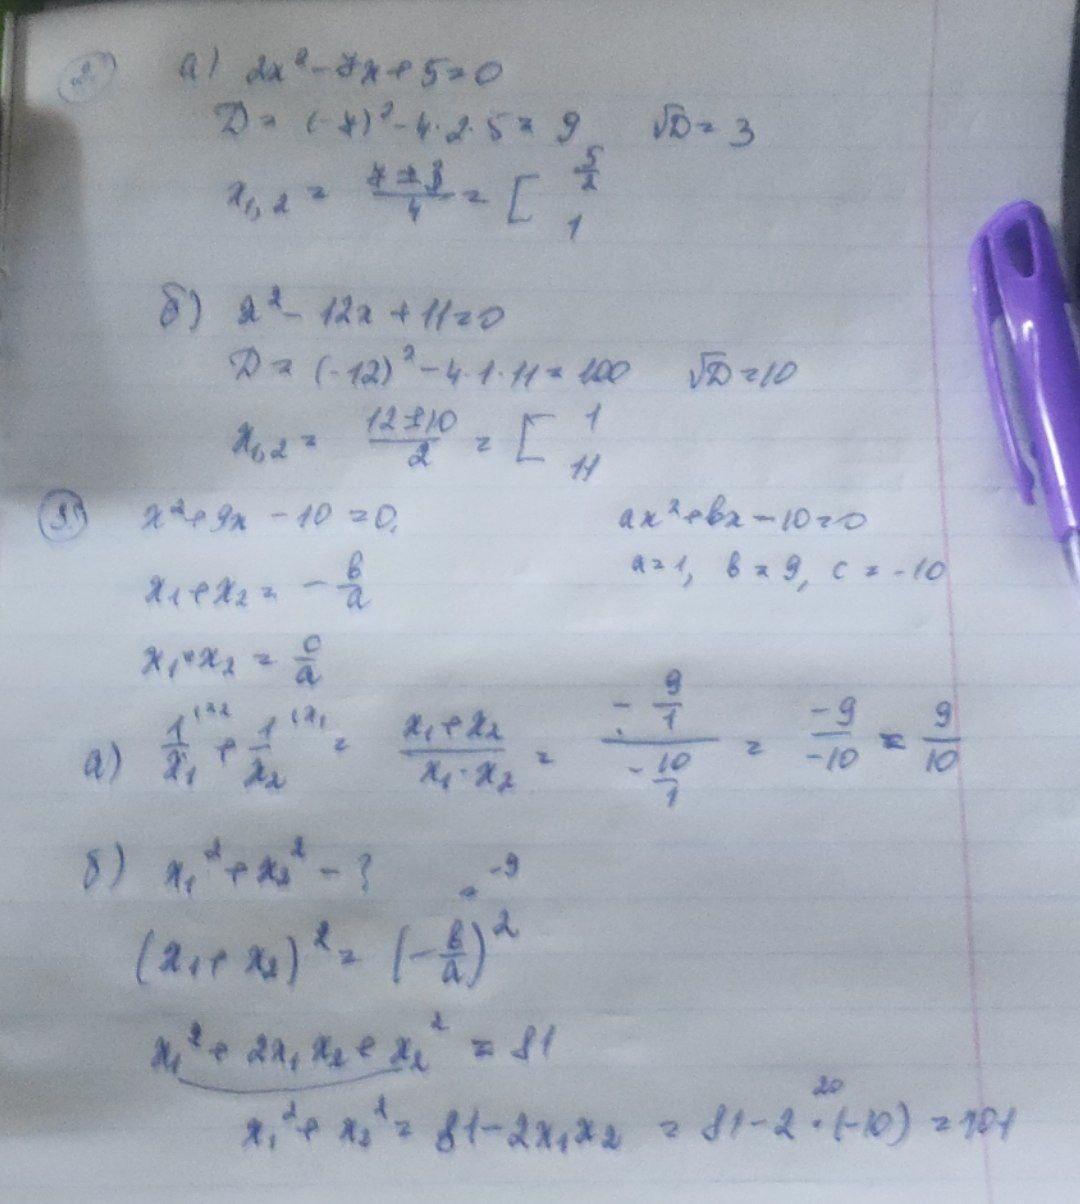 2) а) 2x² - 7x + 5 = 0
D = (-7)² - 4·2·5 = 9 √D = 3
x₁,₂ = (7 ± 3)/4 = [ 5/2
1
б) x² - 12x + 11 = 0
D = (-12)² - 4·1·11 = 100 √D = 10
x₁,₂ = (12 ± 10)/2 = [ 1
11
x² + 9x - 10 = 0. ax² + bx - 10 = 0
x₁ + x₂ = - b/a a = 1, b = 9, c = -10
x₁ · x₂ = c/a
а) 1/x₁ ⁽ˣ² + 1/x₂ ⁽ˣ¹ = (x₁ + x₂)/(x₁ · x₂) = (- 9/1)/(- 10/1) = -9/-10 = 9/10
б) x₁² + x₂² - ?
(x₁ + x₂)² = (- b/a)² = -9
x₁² + 2x₁x₂ + x₂² = 81
x₁² + x₂² = 81 - 2x₁x₂ = 81 - 2 · (-10) = 101 20